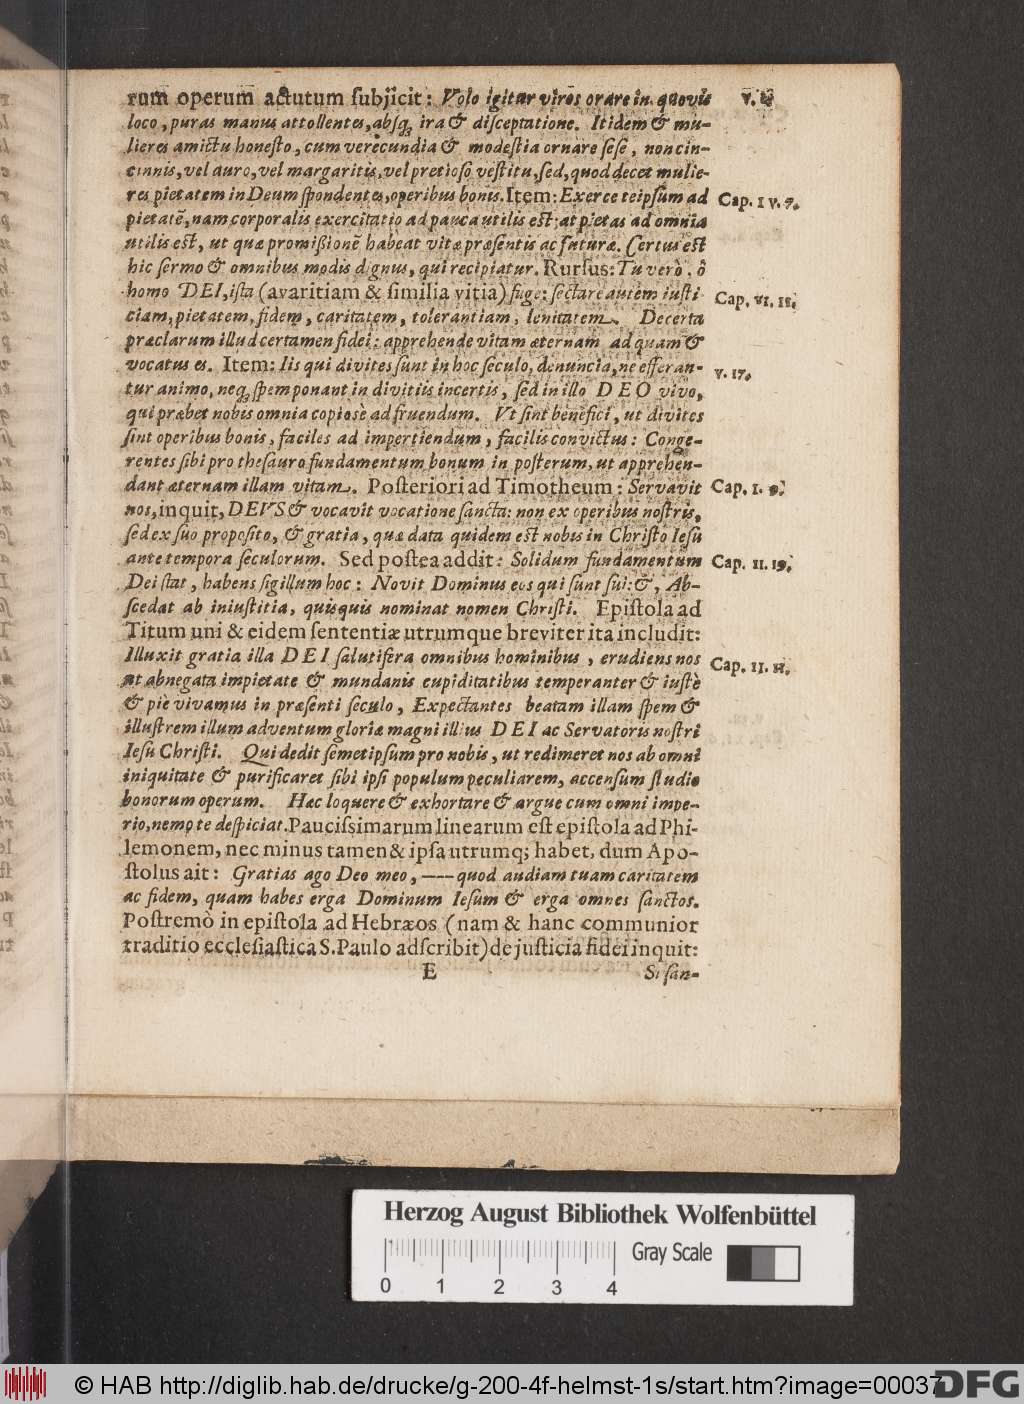 rum operum actutum subjicit: Volo igitur viros orare in quovis
v. 8
loco, puras manus attollentes, absq; ira & disceptatione. Itidem & mu-
lieres amictu honesto, cum verecundia & modestia ornare sese, non cin-
cinnis, vel auro, vel margaritis, vel pretioso vestitu, sed, quod decet mulie-
res pietatem in Deum spondentes, operibus bonis. Item: Exerce teipsum ad
Cap. IV. 7.
pietatē, nam corporalis exercitatio ad pauca utilis est: at pietas ad omnia
utilis est, ut quæ promißionē habeat vitæ præsentis ac futuræ. Certus est
hic sermo & omnibus modis dignus, qui recipiatur. Rursus: Tu verò, ô
homo DEI, ista (avaritiam & similia vitia) fuge: sectare autem iusti
Cap. VI. 11.
ciam, pietatem, fidem, caritatem, tolerantiam, lenitatem. Decerta
præclarum illud certamen fidei: apprehende vitam æternam ad quam &
vocatus es. Item: Iis qui divites sunt in hoc seculo, denuncia, ne efferan-
v. 17.
tur animo, neq; spem ponant in divitiis incertis, sed in illo DEO vivo,
qui præbet nobis omnia copiosè ad fruendum. Vt sint benefici, ut divites
sint operibus bonis, faciles ad impertiendum, facilis convictus: Conge-
rentes sibi pro thesauro fundamentum bonum in posterum, ut apprehen-
dant æternam illam vitam. Posteriori ad Timotheum: Servavit
Cap. I. 9.
nos, inquit, DEVS & vocavit vocatione sancta: non ex operibus nostris,
sed ex suo proposito, & gratia, quæ data quidem est nobis in Christo Iesu
ante tempora seculorum. Sed postea addit: Solidum fundamentum
Cap. II. 19.
Dei stat, habens sigillum hoc: Novit Dominus eos qui sunt sui: &, Ab-
scedat ab iniustitia, quisquis nominat nomen Christi. Epistola ad
Titum uni & eidem sententiæ utrumque breviter ita includit:
Illuxit gratia illa DEI salutifera omnibus hominibus, erudiens nos
Cap. II. 11.
ut abnegata impietate & mundanis cupiditatibus temperanter & iustè
& pie vivamus in præsenti seculo, Expectantes beatam illam spem &
illustrem illum adventum gloriæ magni illius DEI ac Servatoris nostri
Iesu Christi. Qui dedit semetipsum pro nobis, ut redimeret nos ab omni
iniquitate & purificaret sibi ipsi populum peculiarem, accensum studio
bonorum operum. Hæc loquere & exhortare & argue cum omni impe-
rio, nemo te despiciat. Paucissimarum linearum est epistola ad Phi-
lemonem, nec minus tamen & ipsa utrumq; habet, dum Apo-
stolus ait: Gratias ago Deo meo, —— quod audiam tuam caritatem
ac fidem, quam habes erga Dominum Iesum & erga omnes sanctos.
Postremò in epistola ad Hebræos (nam & hanc communior
traditio ecclesiastica S. Paulo adscribit) de justicia fidei inquit:
E
Si san-
Herzog August Bibliothek Wolfenbüttel
Gray Scale
0 1 2 3 4
© HAB http://diglib.hab.de/drucke/g-200-4f-helmst-1s/start.htm?image=00037
DFG